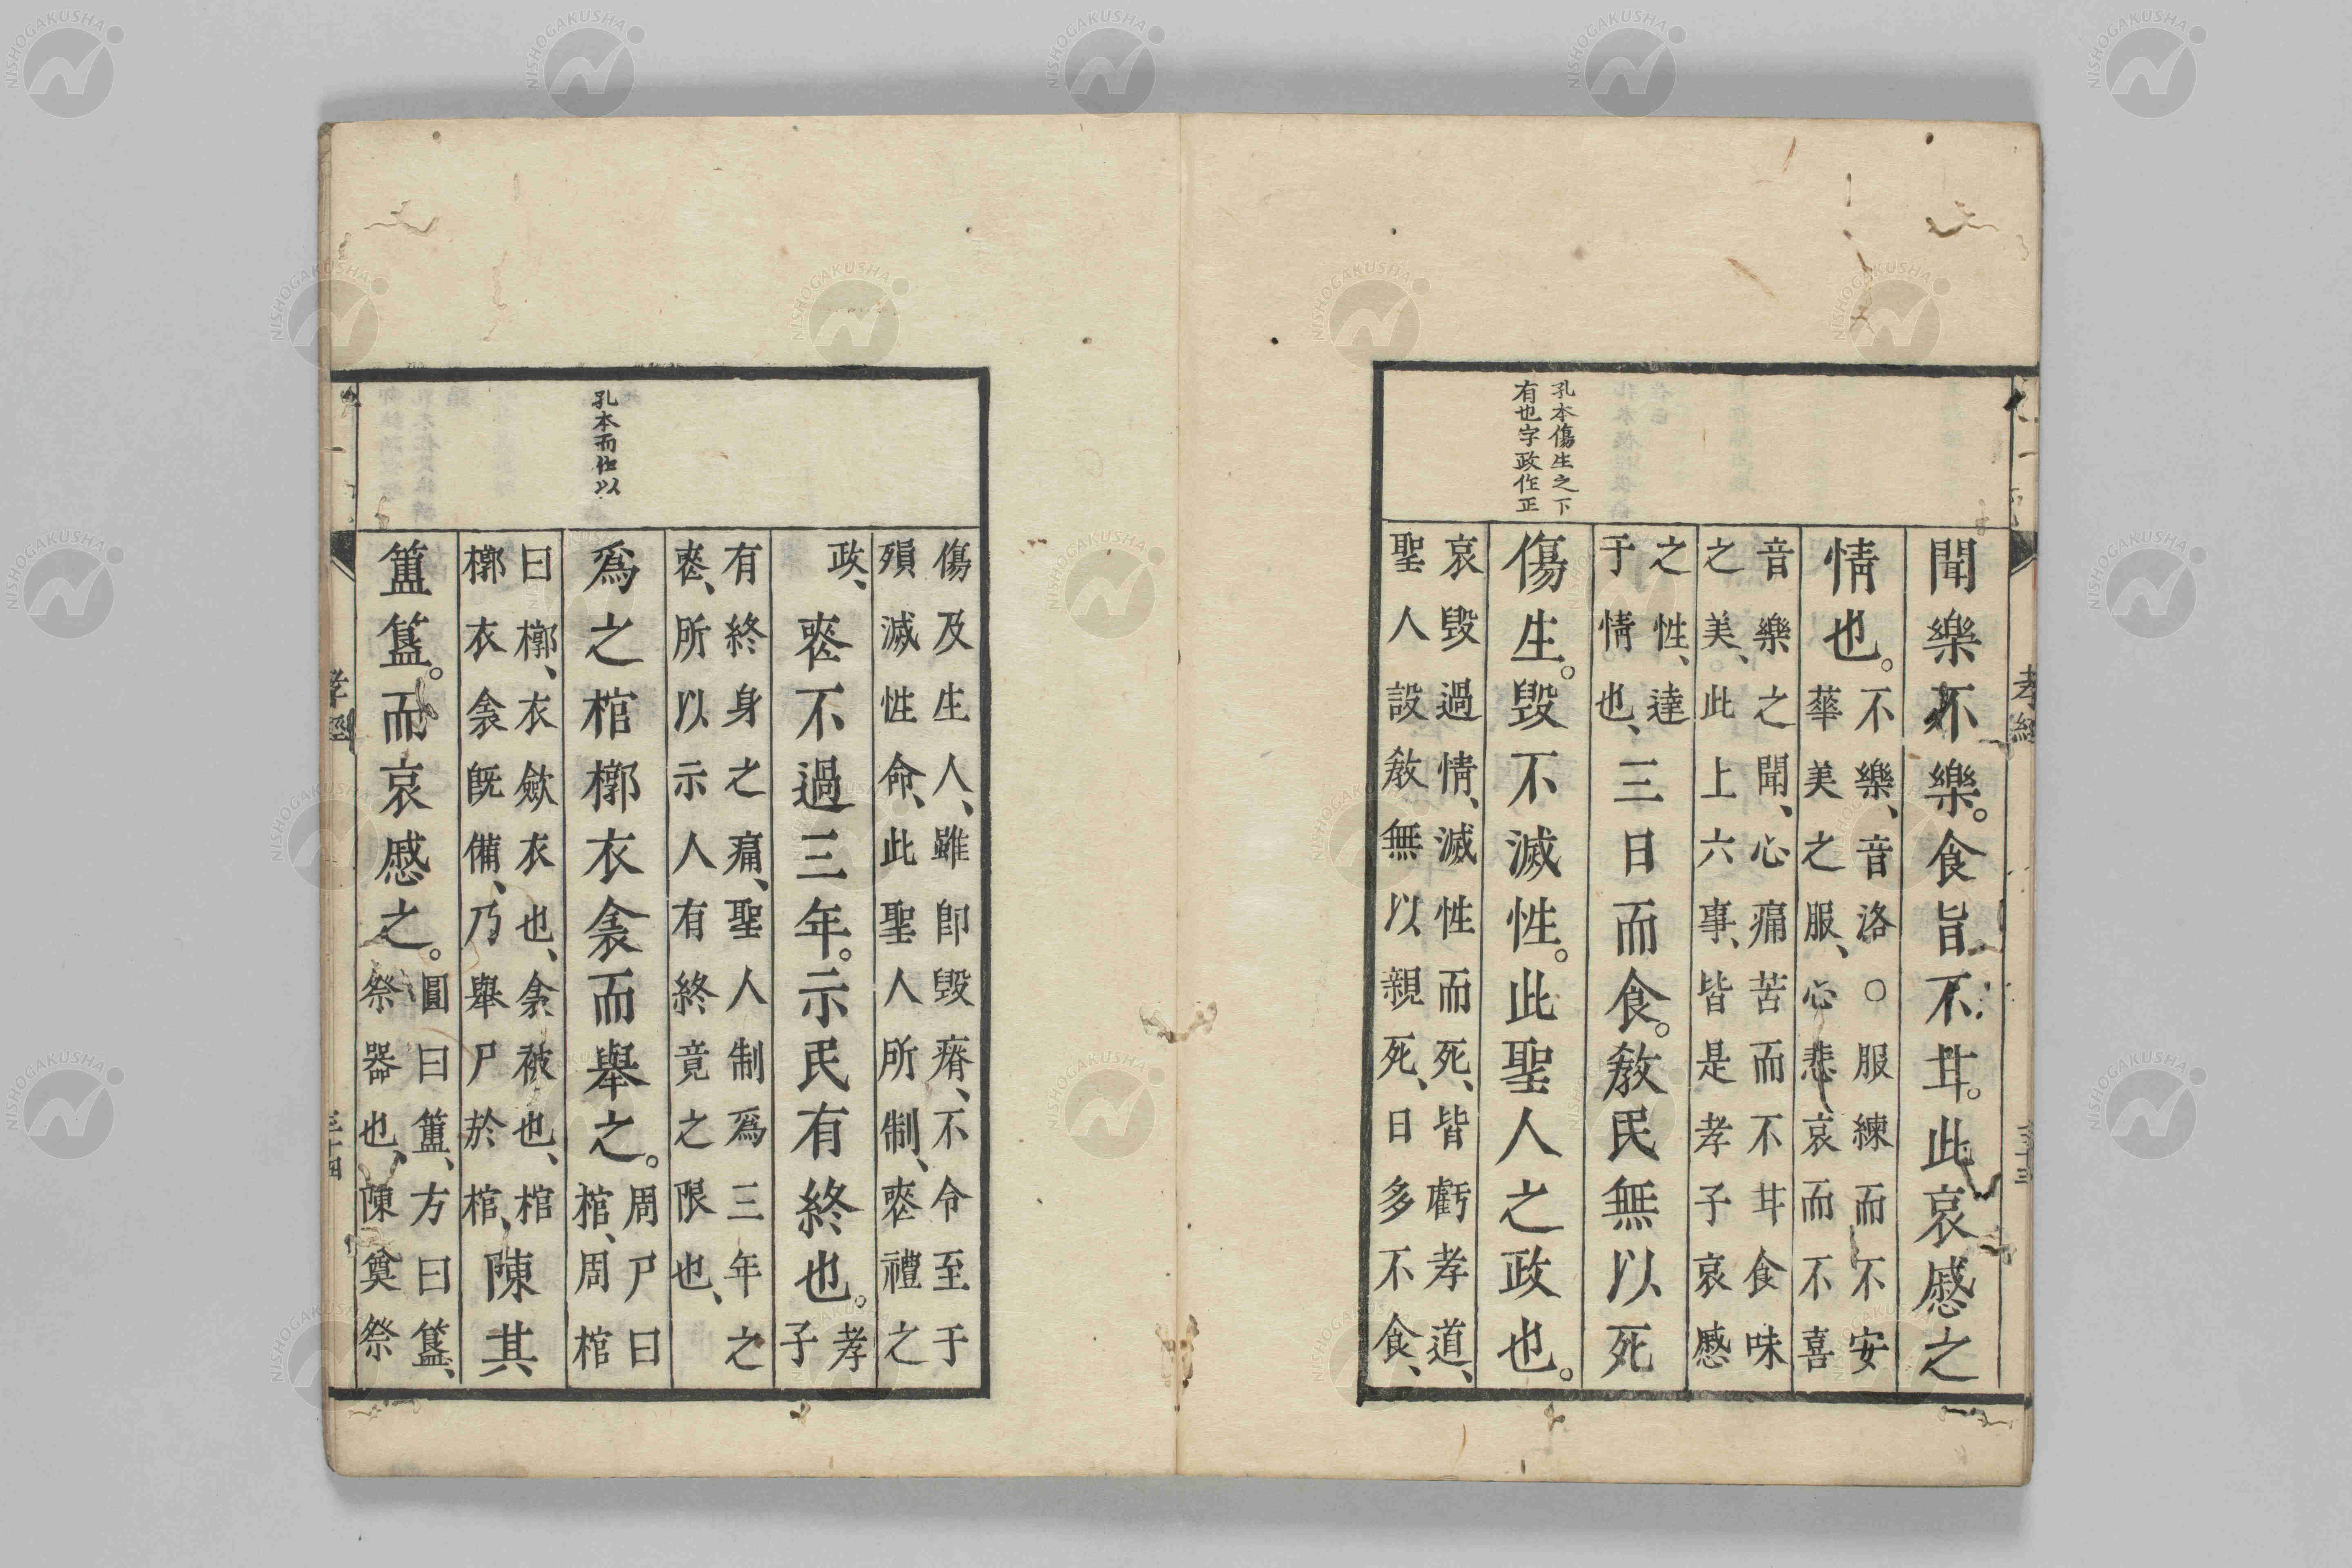 孔本傷生之下
有也字政作正
聞樂不樂。食旨不甘。此哀慼之
情也。
不樂、音洛○服練而不安
華美之服、心悲哀而不喜
音樂之聞、心痛苦而不甘食味
之美、此上六事、皆是孝子哀慼
之性、達
于情也、
三日而食。教民無以死
傷生。毀不滅性。此聖人之政也。
哀毀過情、滅性而死、皆虧孝道、
聖人設教無以親死、日多不食、
孝經
三十三
孔本而作以
傷及生人、雖卽毀瘠、不令至于
殞滅性命、此聖人所制、喪禮之
政、
喪不過三年。示民有終也。
孝
子
有終身之痛、聖人制爲三年之
喪、所以示人有終竟之限也、
爲之棺槨衣衾而舉之。
周尸曰
棺、周棺
曰槨、衣歛衣也、衾被也、棺
槨衣衾旣備、乃舉尸於棺、
陳其
簠簋。而哀慼之。
圓曰簠、方曰簋、
祭器也、陳奠祭
孝經
三十四